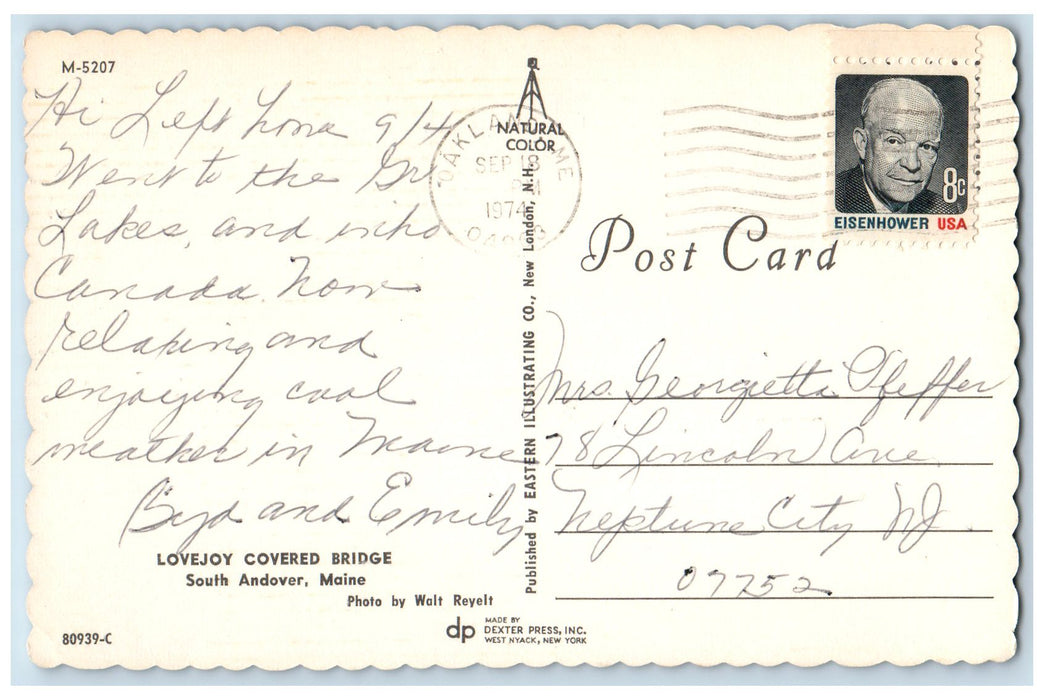 M-5207
Hi Left home 9/4
Went to the Gr.
Lakes, and into
Canada. Now
relaxing and
enjoying cool
weather in Maine
Byd and Emily
LOVEJOY COVERED BRIDGE
South Andover, Maine
Photo by Walt Reyelt
80939-C
NATURAL
COLOR
OAKLAND ME
SEP 18
PM
1974
Published by EASTERN ILLUSTRATING CO., New London, N.H.
dp MADE BY
DEXTER PRESS, INC.
WEST NYACK, NEW YORK
8c
EISENHOWER USA
Post Card
Mrs. Georgietta Pfeffer
78 Lincoln Ave
Neptune City NJ
07752